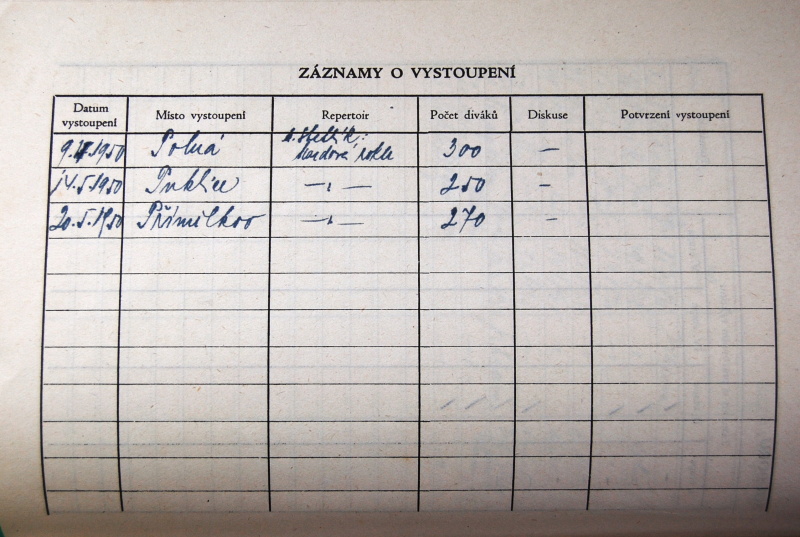 ZÁZNAMY O VYSTOUPENÍ
Datum vystoupení Místo vystoupení Repertoir Počet diváků Diskuse Potvrzení vystoupení
1950 Polná M. Stehlík: Mordová rokle 300 —
14.5.1950 Puklice —〃— 250 —
20.5.1950 Přímělkov —〃— 270 —